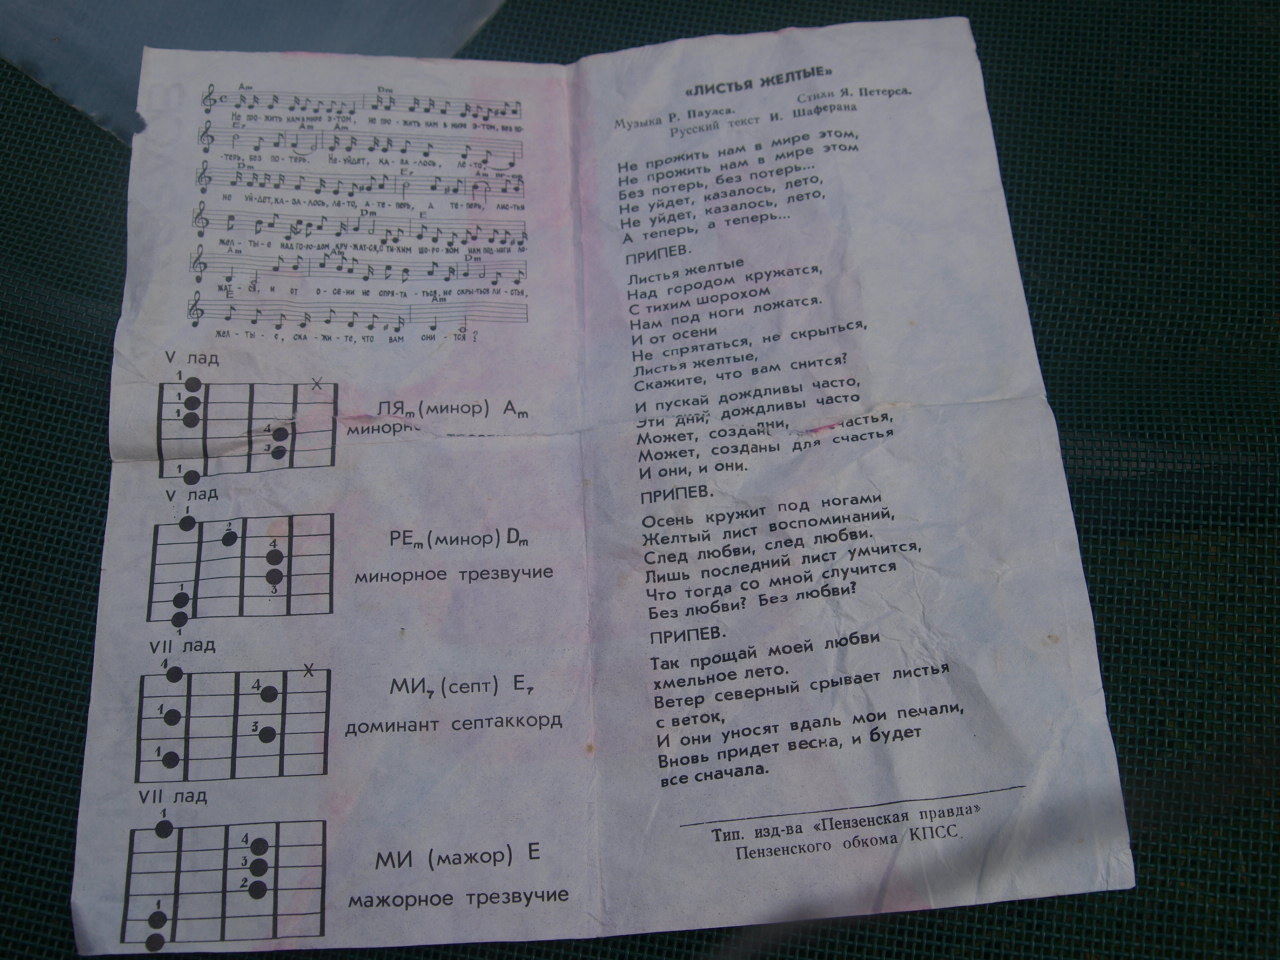 Am Dm
Не про-жить нам в мире э-том, не про-жить нам в мире э-том, без по-
E7 Am Am
-терь, без по-терь. Не уйдет, ка-за-лось, ле-то,
Dm E7 Am
не уй-дет, ка-за-лось, ле-то, а те-перь, а те-перь, лис-тья
Dm E
жел-ты-е над го-ро-дом кру-жат-ся, с ти-хим шоро-хом нам под ноги ло-
Am Am Dm
жат-ся, и от о-се-ни не спря-та-ться, не скры-ться ли-стья,
E Am
жел-ты-е, ска-жи-те, что вам сни-тся?
V лад
1 X
1
1
4
3
1
ЛЯm (минор) Am
минорн
V лад
1
2
4
3
1
1
РЕm (минор) Dm
минорное трезвучие
VII лад
4 X
4
1
3
1
МИ7 (септ) E7
доминант септаккорд
VII лад
1
4
3
2
1
МИ (мажор) E
мажорное трезвучие
«ЛИСТЬЯ ЖЕЛТЫЕ»
Музыка Р. Паулса. Стихи Я. Петерса.
Русский текст И. Шаферана
Не прожить нам в мире этом,
Не прожить нам в мире этом
Без потерь, без потерь...
Не уйдет, казалось, лето,
Не уйдет, казалось, лето,
А теперь, а теперь...
ПРИПЕВ.
Листья желтые
Над городом кружатся,
С тихим шорохом
Нам под ноги ложатся.
И от осени
Не спрятаться, не скрыться,
Листья желтые,
Скажите, что вам снится?
И пускай дождливы часто,
Эти дни, дождливы часто
Может, создан дни, частья,
Может, созданы для счастья
И они, и они.
ПРИПЕВ.
Осень кружит под ногами
Желтый лист воспоминаний,
След любви, след любви.
Лишь последний лист умчится,
Что тогда со мной случится
Без любви? Без любви?
ПРИПЕВ.
Так прощай моей любви
хмельное лето.
Ветер северный срывает листья
с веток,
И они уносят вдаль мои печали,
Вновь придет весна, и будет
все сначала.
Тип. изд-ва «Пензенская правда»
Пензенского обкома КПСС.